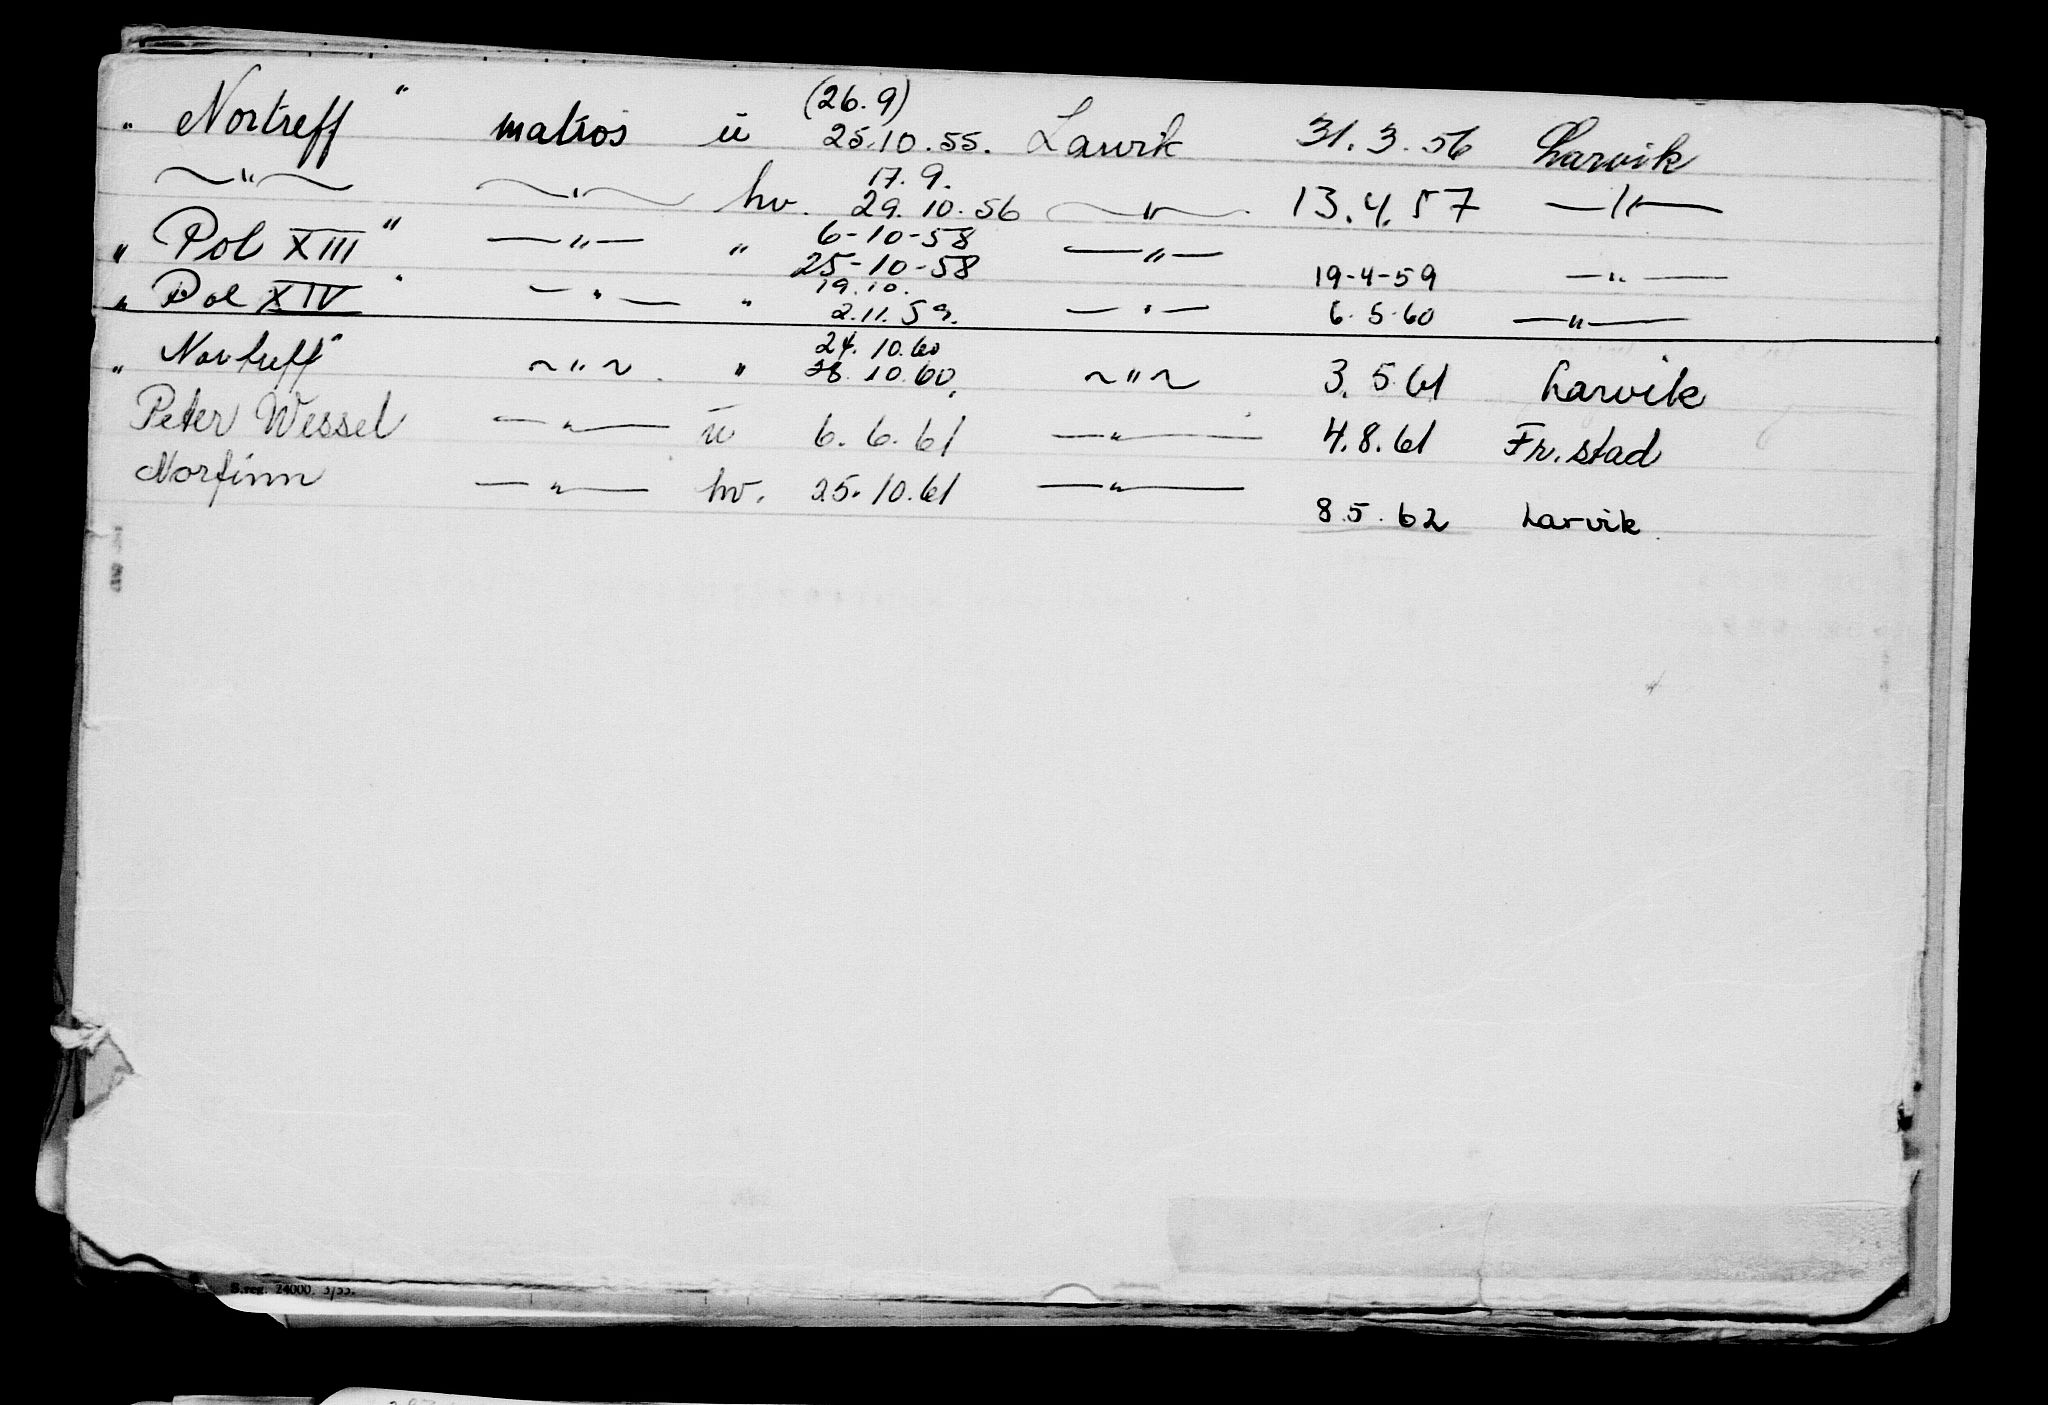 „ Nortreff " matros ü (26.9) 25.10.55. Larvik 31.3.56 Larvik
—"— —"— hv. 17.9. 29.10.56 —"— 13.4.57 —"—
„ Pol XIII " —"— " 6-10-58 25-10-58 —"— 19-4-59 —"—
„ Pol XIV " —"— " 19.10. 2.11.59. —"— 6.5.60 —"—
„ Nortreff " ~"~ " 24.10.60 28.10.60. ~"~ 3.5.61 Larvik
Peter Wessel —"— ü 6.6.61 —"— 4.8.61 Fr.stad
Norfinn —"— hv. 25.10.61 —"— 8.5.62 Larvik
S.reg. 24000. 3/55.